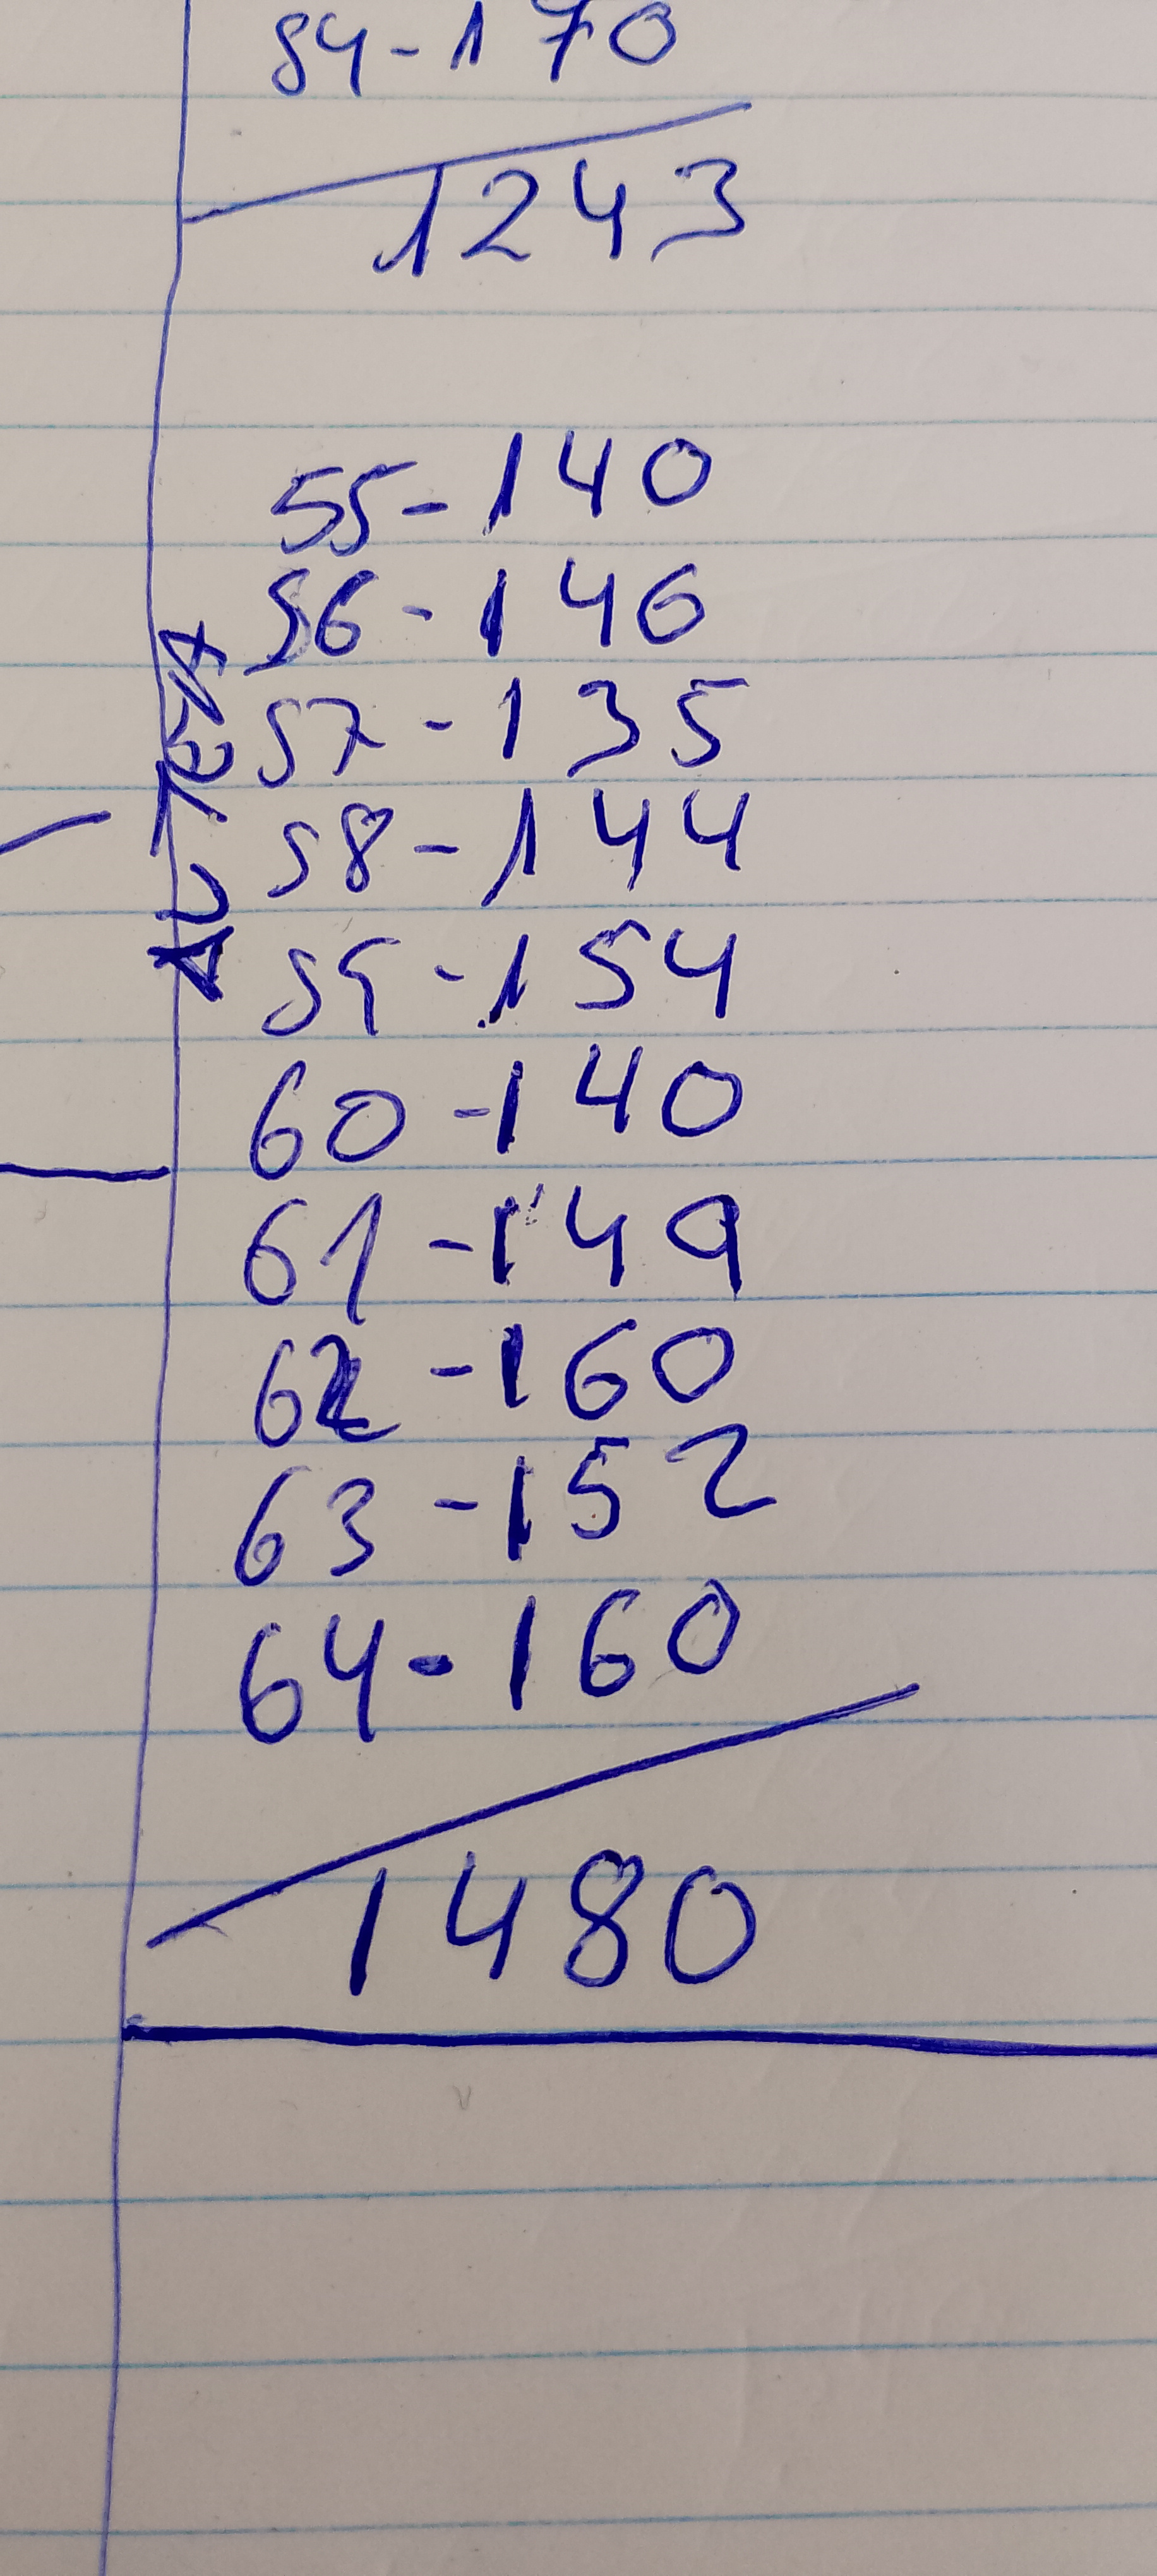 54-170
1243
55-140
56-146
57-135
58-144
59-154
60-140
61-149
62-160
63-152
64-160
1480